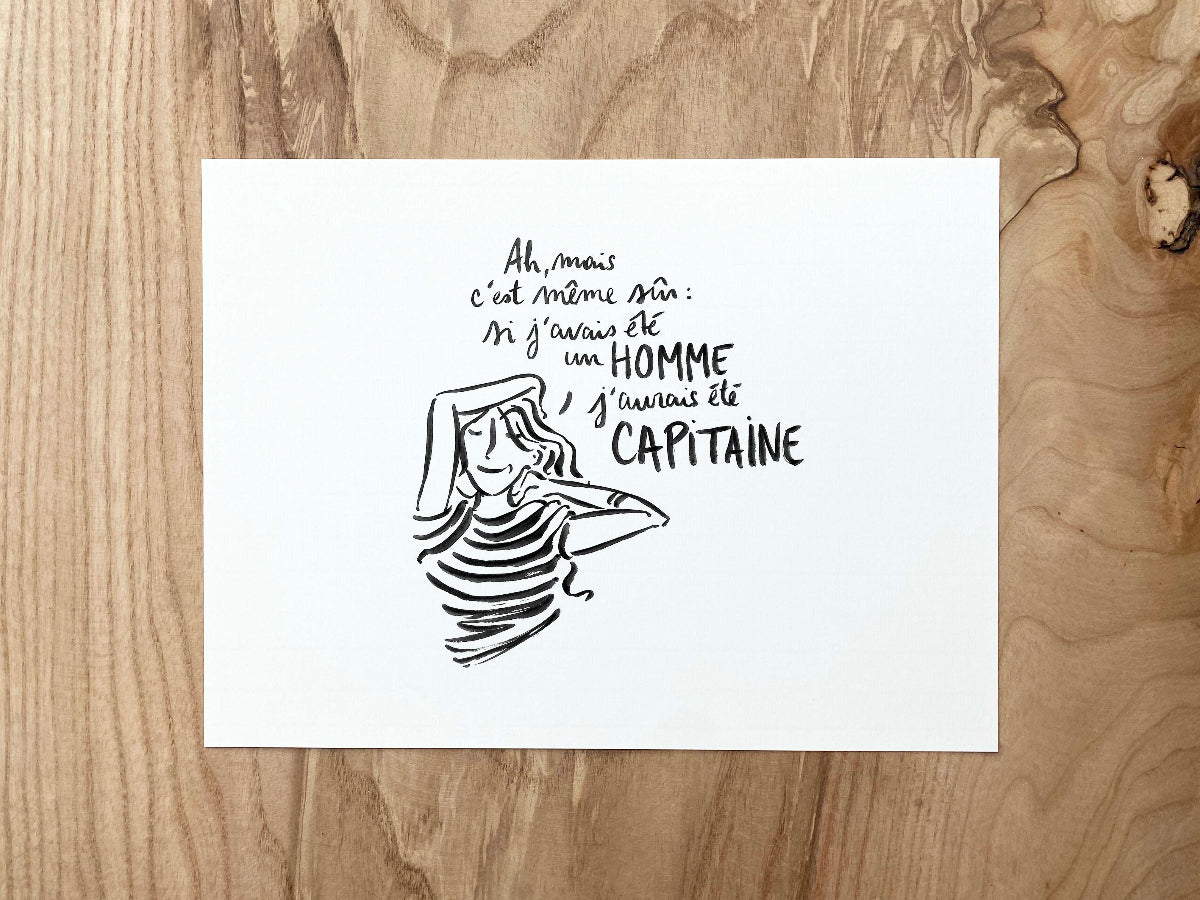 Ah, mais
c'est même sûr :
si j'avais été
un HOMME
j'aurais été
CAPITAINE